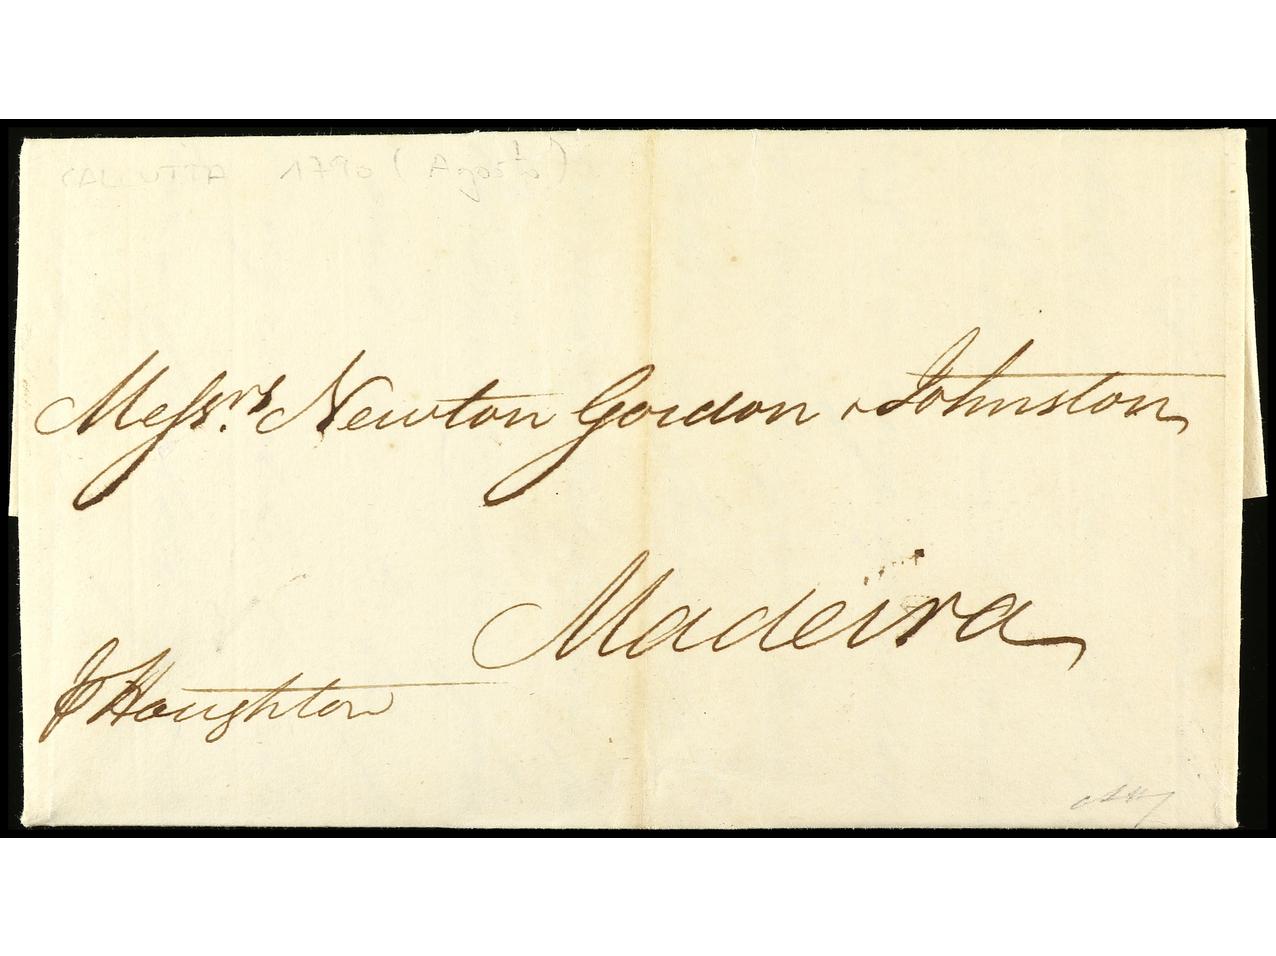 CALCUTTA 1790 (Agosto)
Messrs. Newton Gordon & Johnston
Madeira
P Houghton